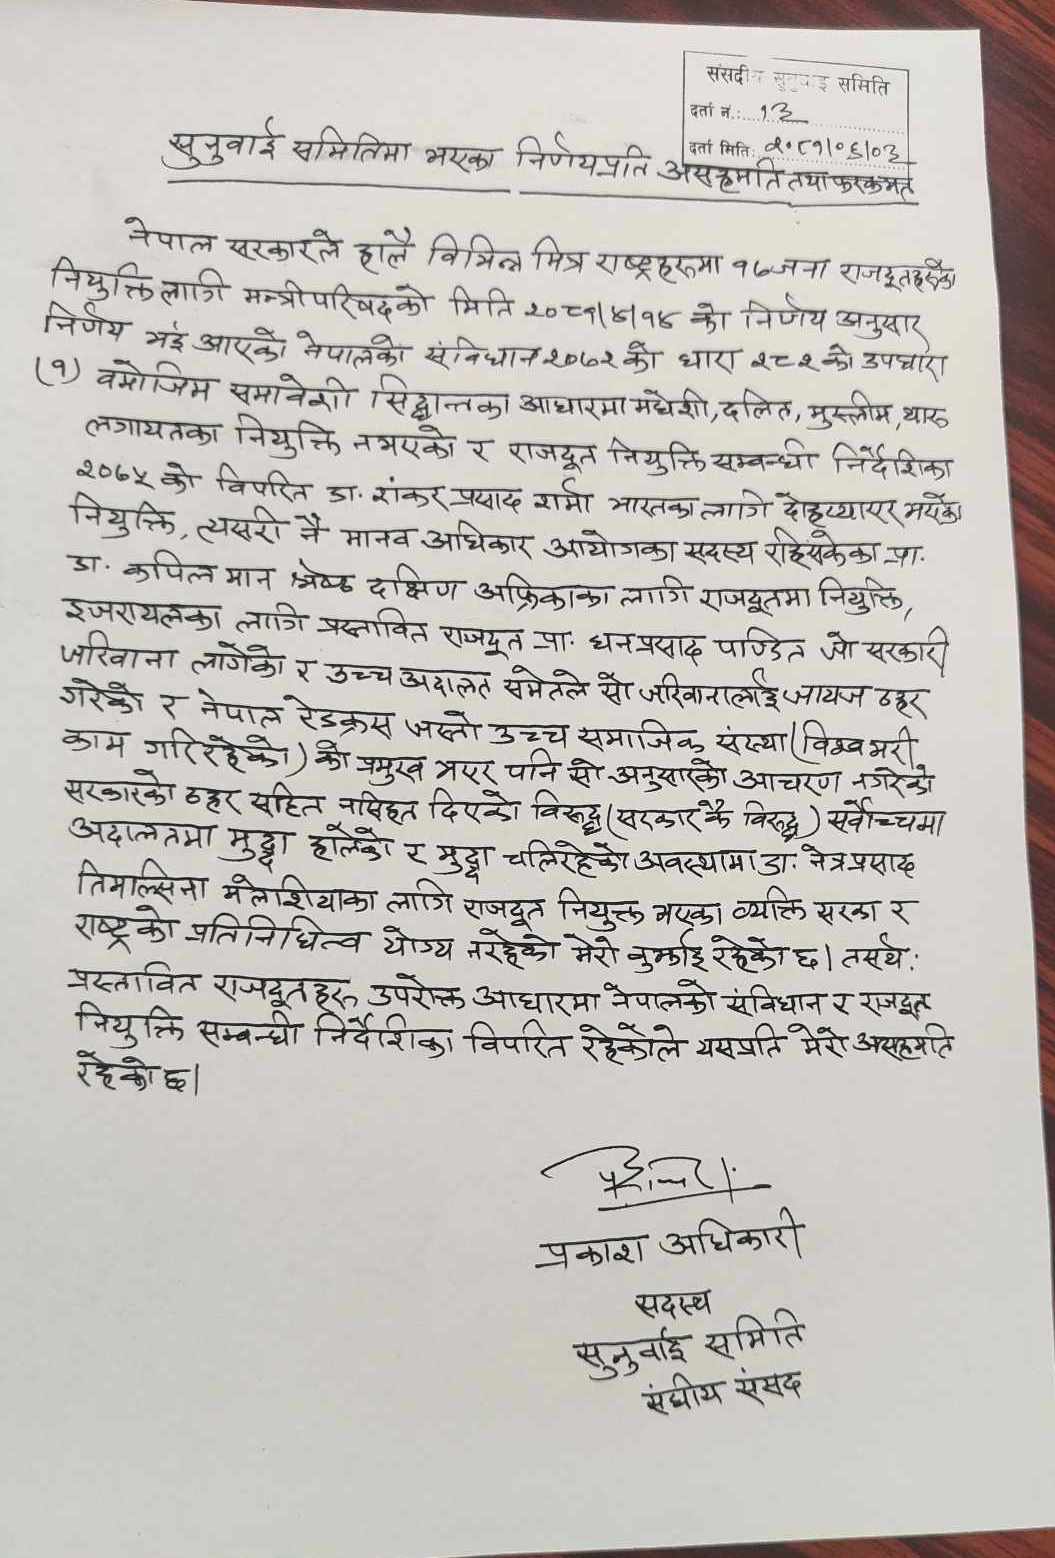 संसदीय सुनुवाइ समिति
दर्ता नं.: १३
दर्ता मिति: २०८१/०६/०३
सुनुवाई समितिमा भएका निर्णयप्रति असहमति तथा फरकमत
नेपाल सरकारले हालै विभिन्न मित्र राष्ट्रहरुमा १७ जना राजदूतहरुको
नियुक्ति लागि मन्त्रीपरिषदको मिति २०८१/४/१४ को निर्णय अनुसार
निर्णय भई आएको नेपालको संविधान २०७२ को धारा २८२ को उपधारा
(१) वमोजिम समावेशी सिद्धान्तका आधारमा मधेशी, दलित, मुस्लीम, थारु
लगायतका नियुक्ति नभएको र राजदूत नियुक्ति सम्बन्धी निर्देशिका
२०७५ को विपरित डा. शंकर प्रसाद शर्मा भारतका लागि दोहर्‍याएर भएको
नियुक्ति, त्यसरी नै मानव अधिकार आयोगका सदस्य रहिसकेका प्रा.
डा. कपिल मान श्रेष्ठ दक्षिण अफ्रिकाका लागि राजदूतमा नियुक्ति,
इजरायलका लागि प्रस्तावित राजदूत प्रा. धनप्रसाद पाण्डित जो सरकारी
जरिवाना लागेको र उच्च अदालत समेतले सो जरिवानालाई जायज ठहर
गरेको र नेपाल रेडक्रस जस्तो उच्च समाजिक संस्था (विश्व भरी
काम गरिरहेको) को प्रमुख भएर पनि सो अनुसारको आचरण नगरेको
सरकारको ठहर सहित नसिहत दिएको विरुद्ध (सरकारकै विरुद्ध) सर्वोच्चमा
अदालतमा मुद्धा हालेको र मुद्धा चलिरहेको अवस्थामा डा. नेत्रप्रसाद
तिमल्सिना मलेशियाका लागि राजदूत नियुक्त भएका व्यक्ति सरका र
राष्ट्रको प्रतिनिधित्व योग्य नरहेको मेरो वुझाई रहेको छ। तसर्थ:
प्रस्तावित राजदूतहरु उपरोक्त आधारमा नेपालको संविधान र राजदूत
नियुक्ति सम्वन्धी निर्देशिका विपरित रहेकोले यसप्रति मेरो असहमति
रहेको छ।
प्रकाश अधिकारी
सदस्य
सुनुवाई समिति
संघीय संसद